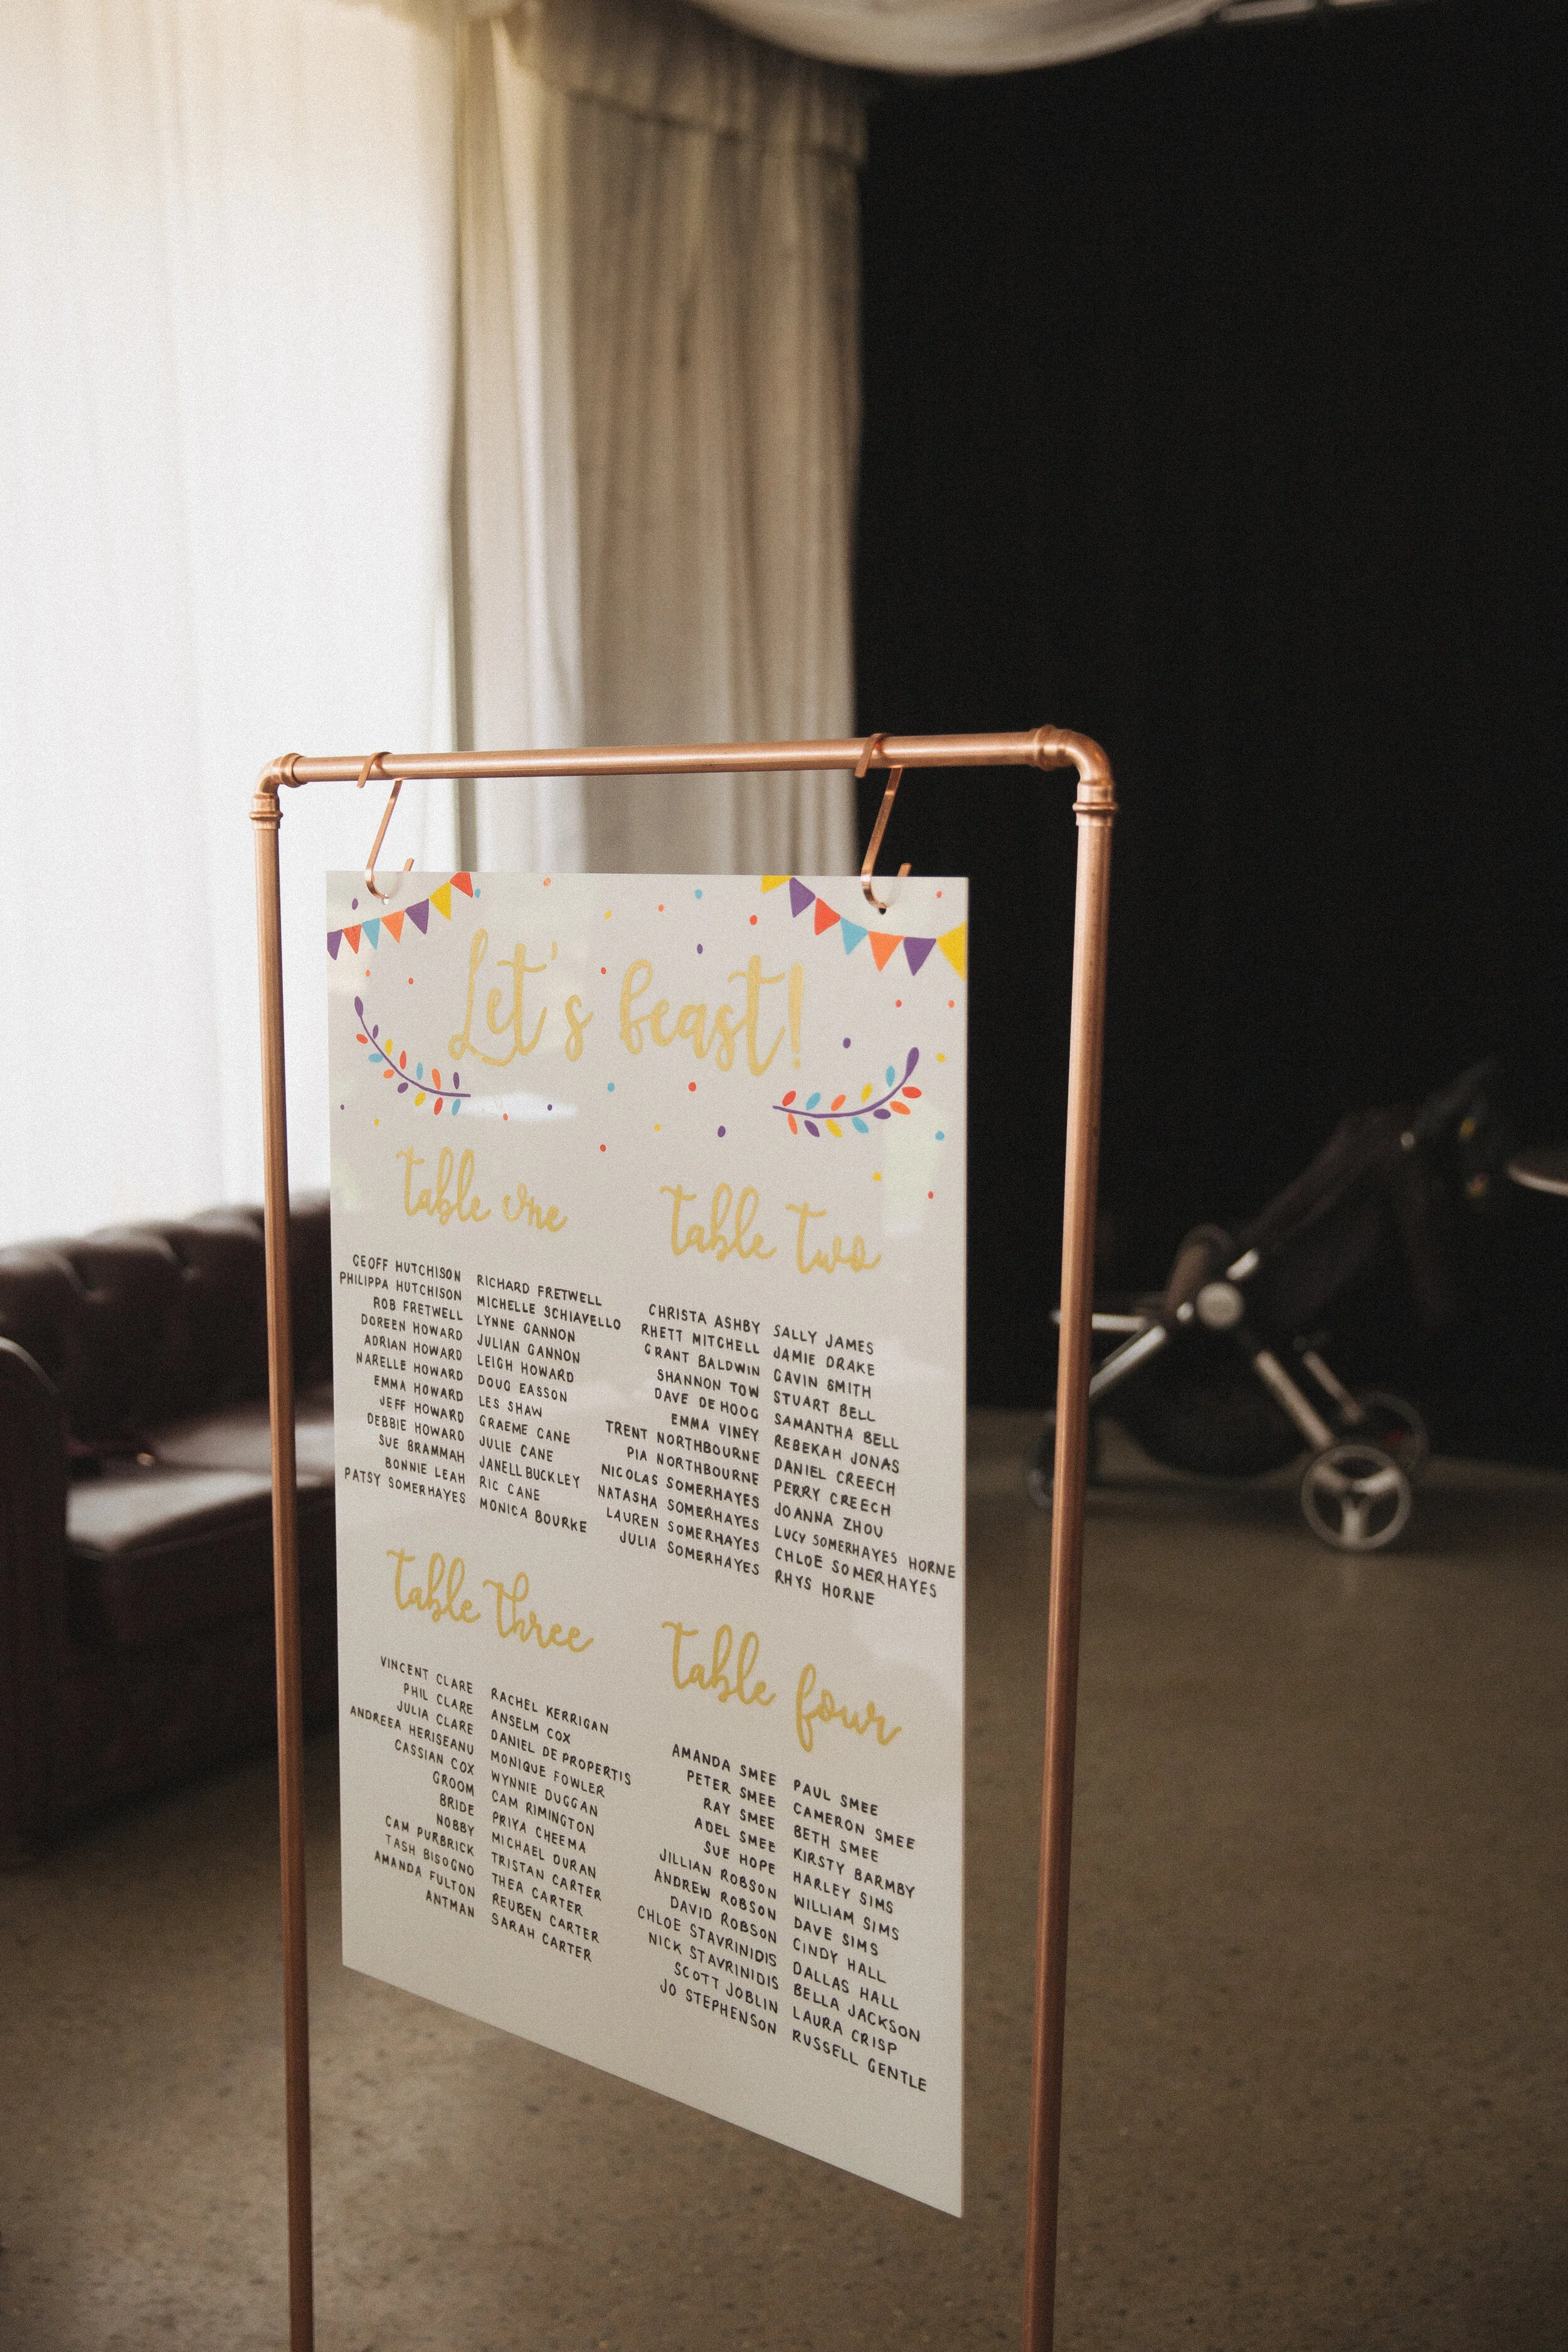 Let's beast!
table one
GEOFF HUTCHISON
PHILIPPA HUTCHISON
ROB FRETWELL
DOREEN HOWARD
ADRIAN HOWARD
NARELLE HOWARD
EMMA HOWARD
JEFF HOWARD
DEBBIE HOWARD
SUE BRAMMAH
BONNIE LEAH
PATSY SOMERHAYES
RICHARD FRETWELL
MICHELLE SCHIAVELLO
LYNNE GANNON
JULIAN GANNON
LEIGH HOWARD
DOUG EASSON
LES SHAW
GRAEME CANE
JULIE CANE
JANELL BUCKLEY
RIC CANE
MONICA BOURKE
table two
CHRISTA ASHBY
RHETT MITCHELL
GRANT BALDWIN
SHANNON TOW
DAVE DE HOOG
EMMA VINEY
TRENT NORTHBOURNE
PIA NORTHBOURNE
NICOLAS SOMERHAYES
NATASHA SOMERHAYES
LAUREN SOMERHAYES
JULIA SOMERHAYES
SALLY JAMES
JAMIE DRAKE
GAVIN SMITH
STUART BELL
SAMANTHA BELL
REBEKAH JONAS
DANIEL CREECH
PERRY CREECH
JOANNA ZHOU
LUCY SOMERHAYES HORNE
CHLOE SOMERHAYES
RHYS HORNE
table three
VINCENT CLARE
PHIL CLARE
JULIA CLARE
ANDREEA HERISEANU
CASSIAN COX
GROOM
BRIDE
NOBBY
CAM PURBRICK
TASH BISOGNO
AMANDA FULTON
ANTMAN
RACHEL KERRIGAN
ANSELM COX
DANIEL DE PROPERTIS
MONIQUE FOWLER
WYNNIE DUGGAN
CAM RIMINGTON
PRIYA CHEEMA
MICHAEL DURAN
TRISTAN CARTER
THEA CARTER
REUBEN CARTER
SARAH CARTER
table four
AMANDA SMEE
PETER SMEE
RAY SMEE
ADEL SMEE
SUE HOPE
JILLIAN ROBSON
ANDREW ROBSON
DAVID ROBSON
CHLOE STAVRINIDIS
NICK STAVRINIDIS
SCOTT JOBLIN
JO STEPHENSON
PAUL SMEE
CAMERON SMEE
BETH SMEE
KIRSTY BARMBY
HARLEY SIMS
WILLIAM SIMS
DAVE SIMS
CINDY HALL
DALLAS HALL
BELLA JACKSON
LAURA CRISP
RUSSELL GENTLE